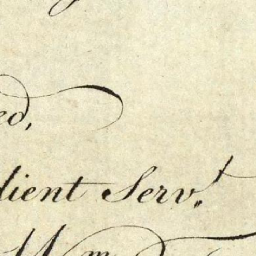 ed,
dient Serv.t
Wm